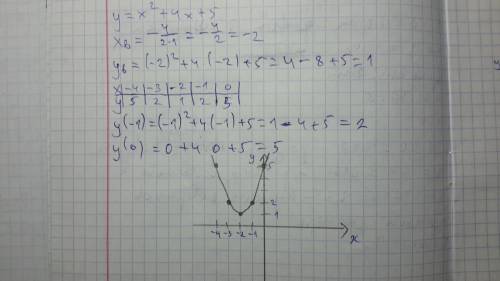 y = x² + 4x + 5
xв = -4/2·1 = -4/2 = -2
yв = (-2)² + 4(-2) + 5 = 4 - 8 + 5 = 1
x | -4 | -3 | -2 | -1 | 0
y | 5 | 2 | 1 | 2 | 5
y(-1) = (-1)² + 4(-1) + 5 = 1 - 4 + 5 = 2
y(0) = 0 + 4 0 + 5 = 5
y
5
2
1
-4 -3 -2 -1
x